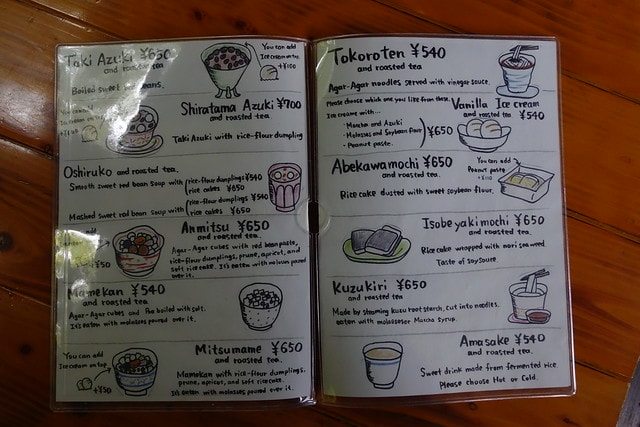 Taki Azuki ¥650
and roasted tea
Boiled sweet beans.
You can add
Ice cream on top
+¥100
Shiratama Azuki ¥700
and roasted tea.
Taki Azuki with rice-flour dumpling
Ice cream on top
Oshiruko and roasted tea.
Smooth sweet red bean soup with rice-flour dumplings ¥540
rice cakes ¥650
Mashed sweet red bean soup with rice-flour dumplings ¥540
rice cakes ¥650
Anmitsu ¥650
and roasted tea.
Agar-Agar cubes with red bean paste,
rice-flour dumplings, prune, apricot, and
soft rice cake. It's eaten with molasses poured
over it.
+¥50
Mamekan ¥540
and roasted tea
Agar-Agar cubes and Pea boiled with salt.
It's eaten with molasses poured over it.
You can add
Ice cream on top
Mitsumame ¥650
and roasted tea.
Mamekan with rice-flour dumplings,
prune, apricot, and soft rice cake.
It's eaten with molasses poured over it.
Tokoroten ¥540
and roasted tea
Agar-Agar noodles served with vinegar sauce.
Please choose which one you like from these.
Ice creame with...
・Matcha and Azuki
・Molasses and Soybean flour
・Peanut paste.
¥650
Vanilla Ice cream
and roasted tea ¥540
Abekawamochi ¥650
and roasted tea.
Rice cake dusted with sweet soybean flour.
You can add
Peanut paste
Isobeyakimochi ¥650
and roasted tea.
Rice cake wrapped with nori seaweed
Taste of Soy Souce
Kuzukiri ¥650
and roasted tea
Made by steaming kuzu root starch, cut into noodles.
eaten with molasses or Maccha syrup.
Amasake ¥540
and roasted tea.
Sweet drink made from fermented rice
Please choose Hot or Cold.